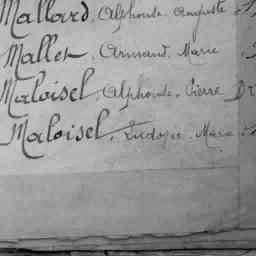 Mallard, Alphonse Auguste
Mallet, Armand, Marie
Maloisel, Alphonse, Pierre
Maloisel, Marie